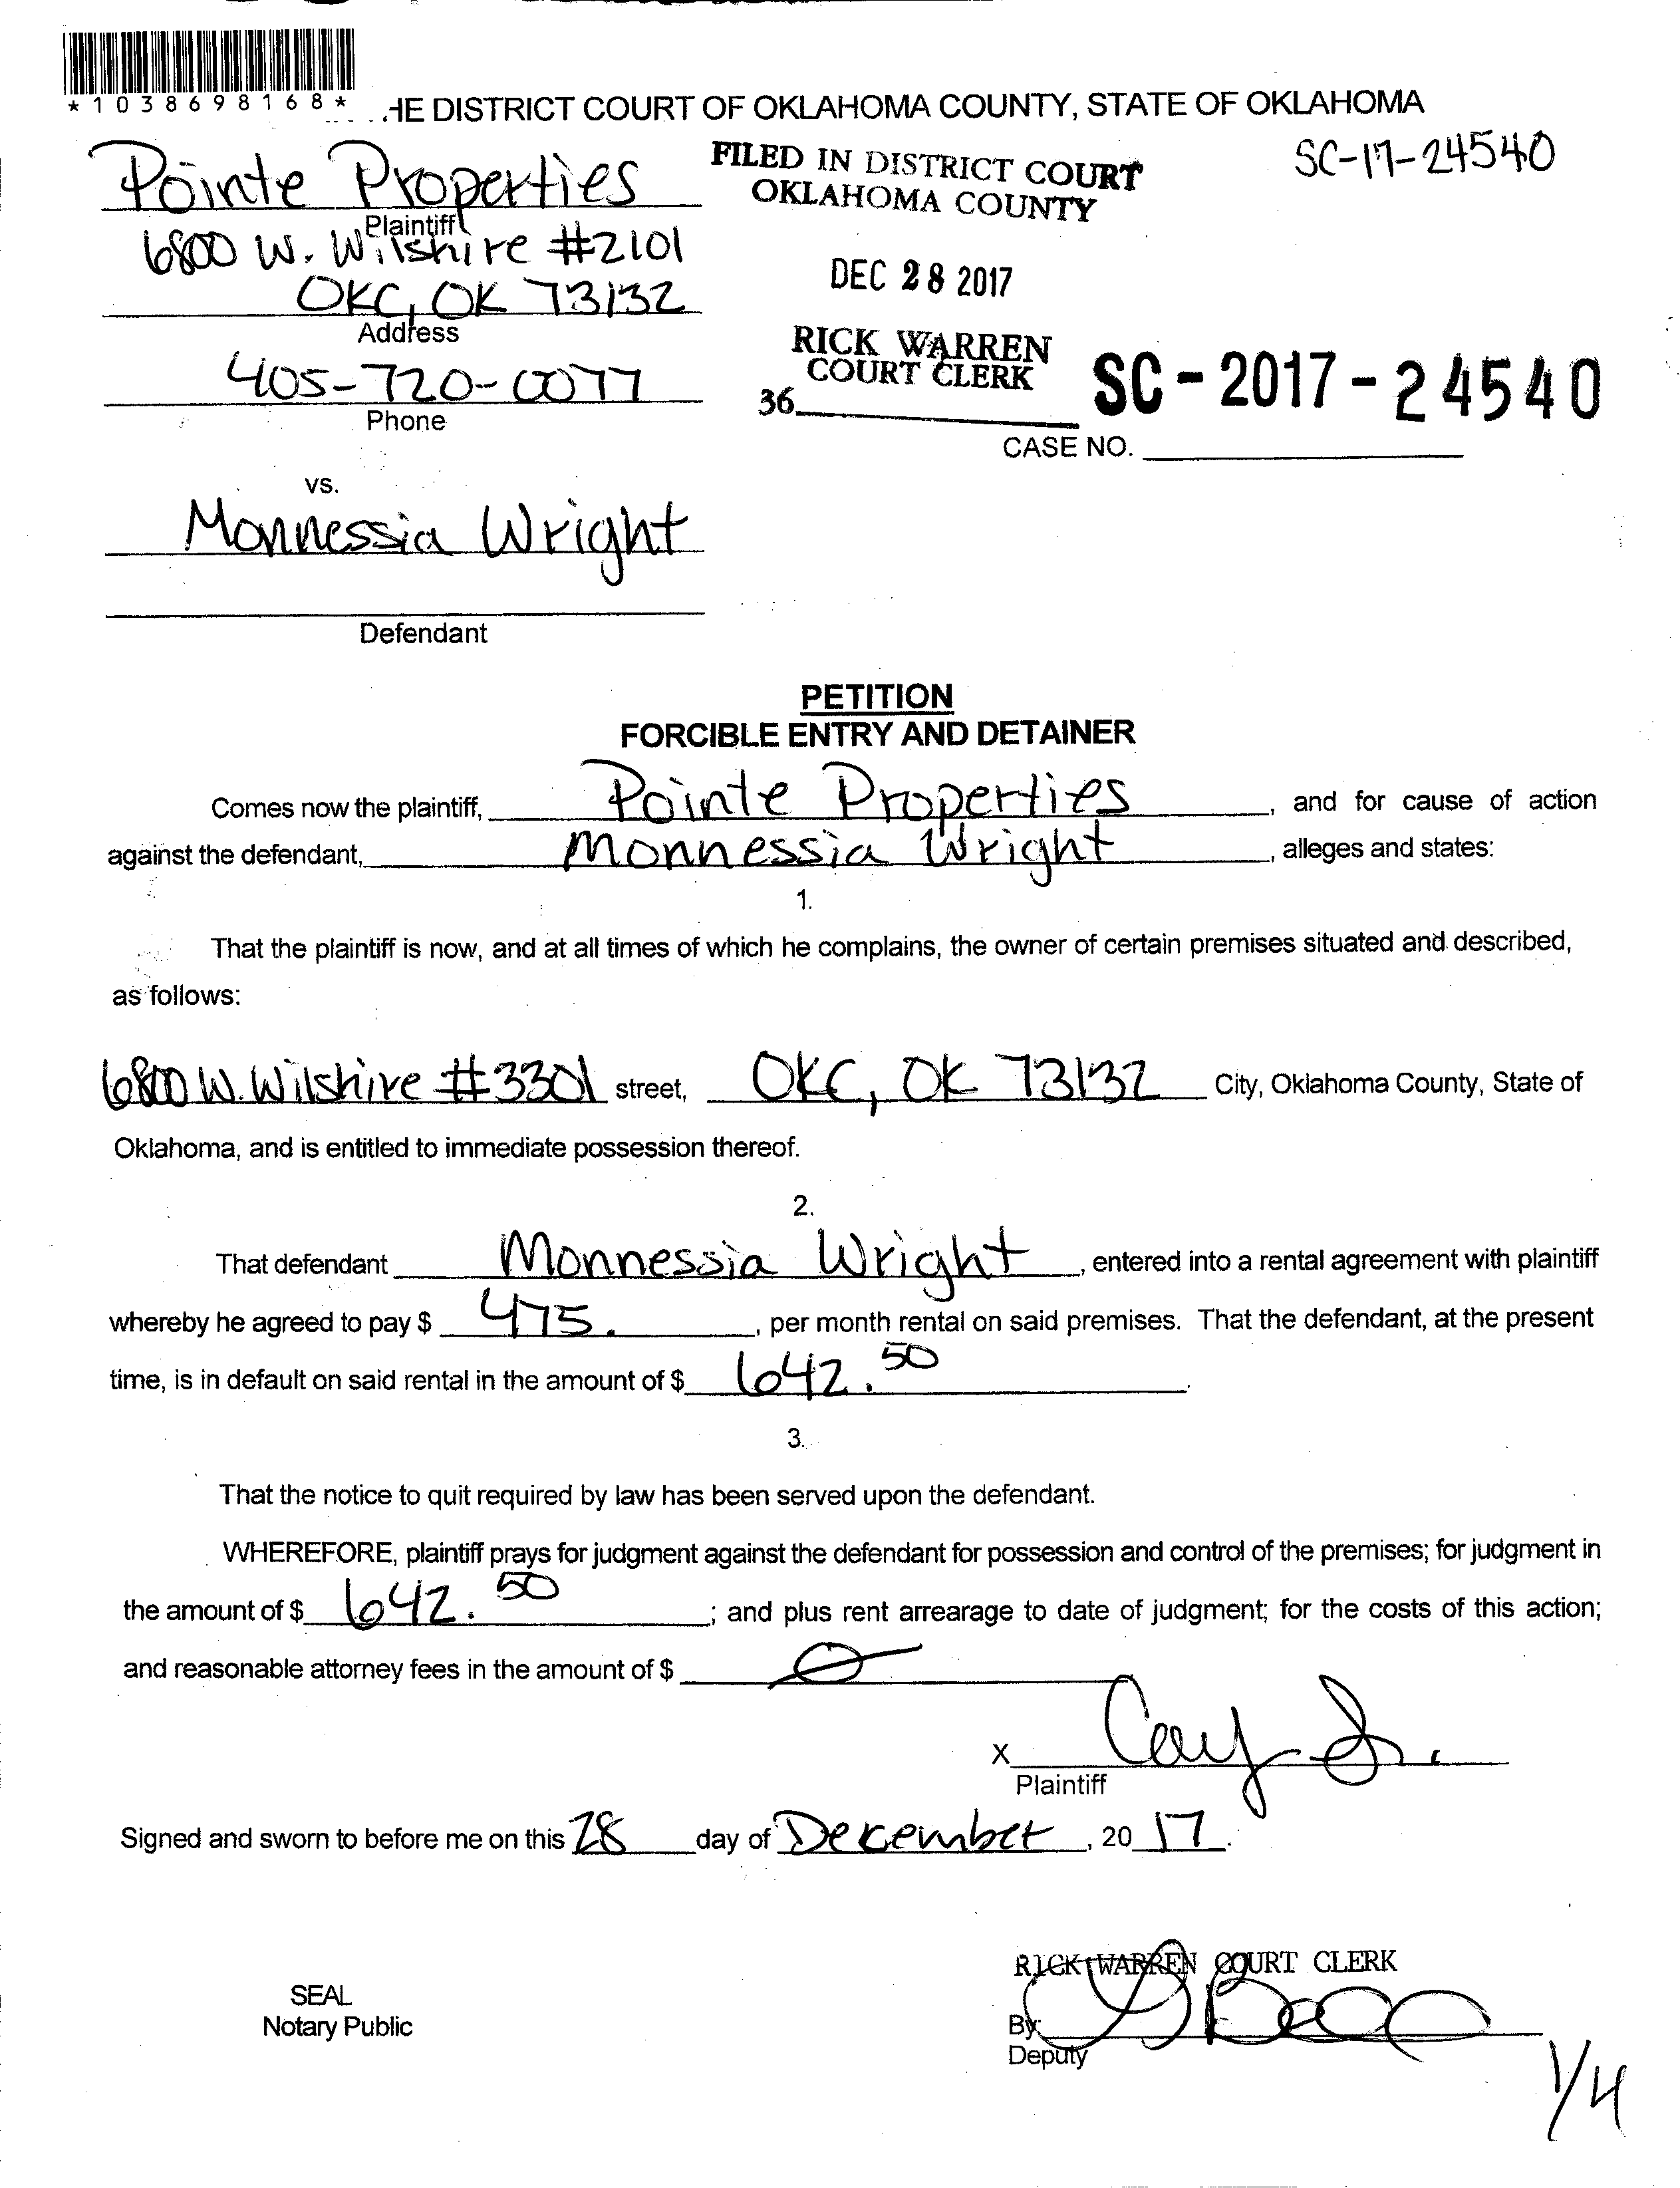 *1038698168*
HE DISTRICT COURT OF OKLAHOMA COUNTY, STATE OF OKLAHOMA
Pointe Properties
Plaintiff
6800 W. Wilshire #2101
OKC, OK 73132
Address
405-720-0077
Phone
FILED IN DISTRICT COURT
OKLAHOMA COUNTY
DEC 28 2017
RICK WARREN
COURT CLERK
36
SC-17-24540
SC-2017-24540
CASE NO.
vs.
Monnessia Wright
Defendant
PETITION
FORCIBLE ENTRY AND DETAINER
Comes now the plaintiff, Pointe Properties, and for cause of action
against the defendant, Monnessia Wright, alleges and states:
1.
That the plaintiff is now, and at all times of which he complains, the owner of certain premises situated and described,
as follows:
6800 W. Wilshire #3301 street, OKC, OK 73132 City, Oklahoma County, State of
Oklahoma, and is entitled to immediate possession thereof.
2.
That defendant Monnessia Wright, entered into a rental agreement with plaintiff
whereby he agreed to pay $ 475. , per month rental on said premises. That the defendant, at the present
time, is in default on said rental in the amount of $ 642.50.
3.
That the notice to quit required by law has been served upon the defendant.
WHEREFORE, plaintiff prays for judgment against the defendant for possession and control of the premises; for judgment in
the amount of $ 642.50; and plus rent arrearage to date of judgment; for the costs of this action;
and reasonable attorney fees in the amount of $ 0
X
Plaintiff
Signed and sworn to before me on this 28 day of December, 20 17.
RICK WARREN COURT CLERK
SEAL
Notary Public
By:
Deputy
1/4